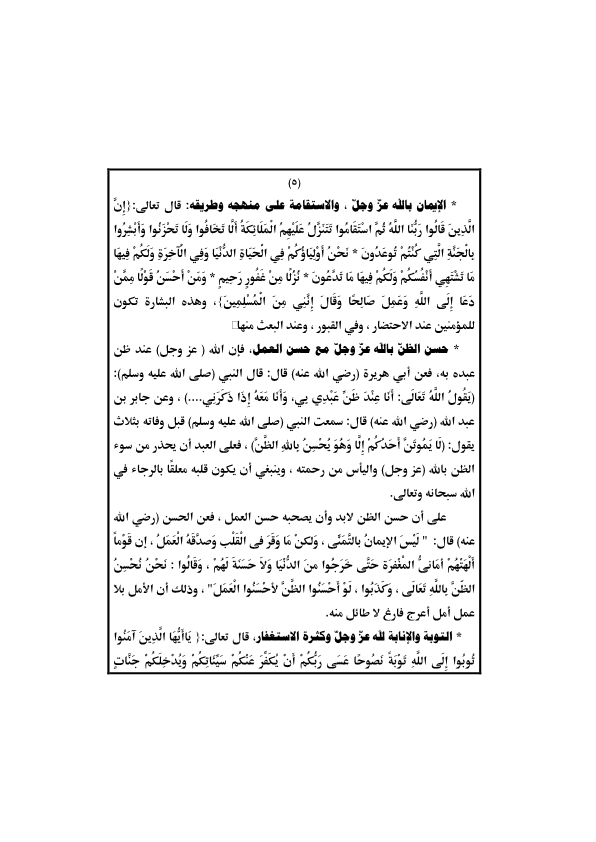 (٥)
* الإيمان بالله عزّ وجلّ ، والاستقامة على منهجه وطريقه: قال تعالى:{إِنَّ
الَّذِينَ قَالُوا رَبُّنَا اللَّهُ ثُمَّ اسْتَقَامُوا تَتَنَزَّلُ عَلَيْهِمُ الْمَلَائِكَةُ أَلَّا تَخَافُوا وَلَا تَحْزَنُوا وَأَبْشِرُوا
بِالْجَنَّةِ الَّتِي كُنْتُمْ تُوعَدُونَ * نَحْنُ أَوْلِيَاؤُكُمْ فِي الْحَيَاةِ الدُّنْيَا وَفِي الْآخِرَةِ وَلَكُمْ فِيهَا
مَا تَشْتَهِي أَنْفُسُكُمْ وَلَكُمْ فِيهَا مَا تَدَّعُونَ * نُزُلًا مِنْ غَفُورٍ رَحِيمٍ * وَمَنْ أَحْسَنُ قَوْلًا مِمَّنْ
دَعَا إِلَى اللَّهِ وَعَمِلَ صَالِحًا وَقَالَ إِنَّنِي مِنَ الْمُسْلِمِينَ}، وهذه البشارة تكون
للمؤمنين عند الاحتضار ، وفي القبور ، وعند البعث منها
* حسن الظنّ بالله عزّ وجلّ مع حسن العمل، فإن الله ( عز وجل) عند ظن
عبده به، فعن أبي هريرة (رضي الله عنه) قال: قال النبي (صلى الله عليه وسلم):
(يَقُولُ اللَّهُ تَعَالَى: أَنَا عِنْدَ ظَنِّ عَبْدِي بِي، وَأَنَا مَعَهُ إِذَا ذَكَرَنِي....) ، وعن جابر بن
عبد الله (رضي الله عنه) قال: سمعت النبي (صلى الله عليه وسلم) قبل وفاته بثلاث
يقول: (لَا يَمُوتَنَّ أَحَدُكُمْ إِلَّا وَهُوَ يُحْسِنُ بِاللهِ الظَّنَّ) ، فعلى العبد أن يحذر من سوء
الظن بالله (عز وجل) واليأس من رحمته ، وينبغي أن يكون قلبه معلقًا بالرجاء في
الله سبحانه وتعالى.
على أن حسن الظن لابد وأن يصحبه حسن العمل ، فعن الحسن (رضي الله
عنه) قال: " لَيْسَ الإيمانُ بالتَّمَنَّى ، وَلكنْ مَا وَقَرَ فى الْقَلْب وَصدَّقَهُ الْعَمَلُ ، إن قَوْماً
ألْهَتْهُمْ أمَانىُّ المْغْفرَة حَتَّى خَرَجُوا منَ الدُّنْيَا وَلاَ حَسَنَةَ لَهُمْ ، وَقَالُوا : نَحْنُ نُحْسِنُ
الظّنَّ باللَّهِ تَعَالَى ، وَكَذَبُوا ، لَوْ أحْسَنُوا الظَّنَّ لأحْسَنُوا الْعَمَلَ" ، وذلك أن الأمل بلا
عمل أمل أعرج فارغ لا طائل منه.
* التوبة والإنابة لله عزّ وجلّ وكثرة الاستغفار، قال تعالى:{ يَاأَيُّهَا الَّذِينَ آمَنُوا
تُوبُوا إِلَى اللَّهِ تَوْبَةً نَصُوحًا عَسَى رَبُّكُمْ أَنْ يُكَفِّرَ عَنْكُمْ سَيِّئَاتِكُمْ وَيُدْخِلَكُمْ جَنَّاتٍ